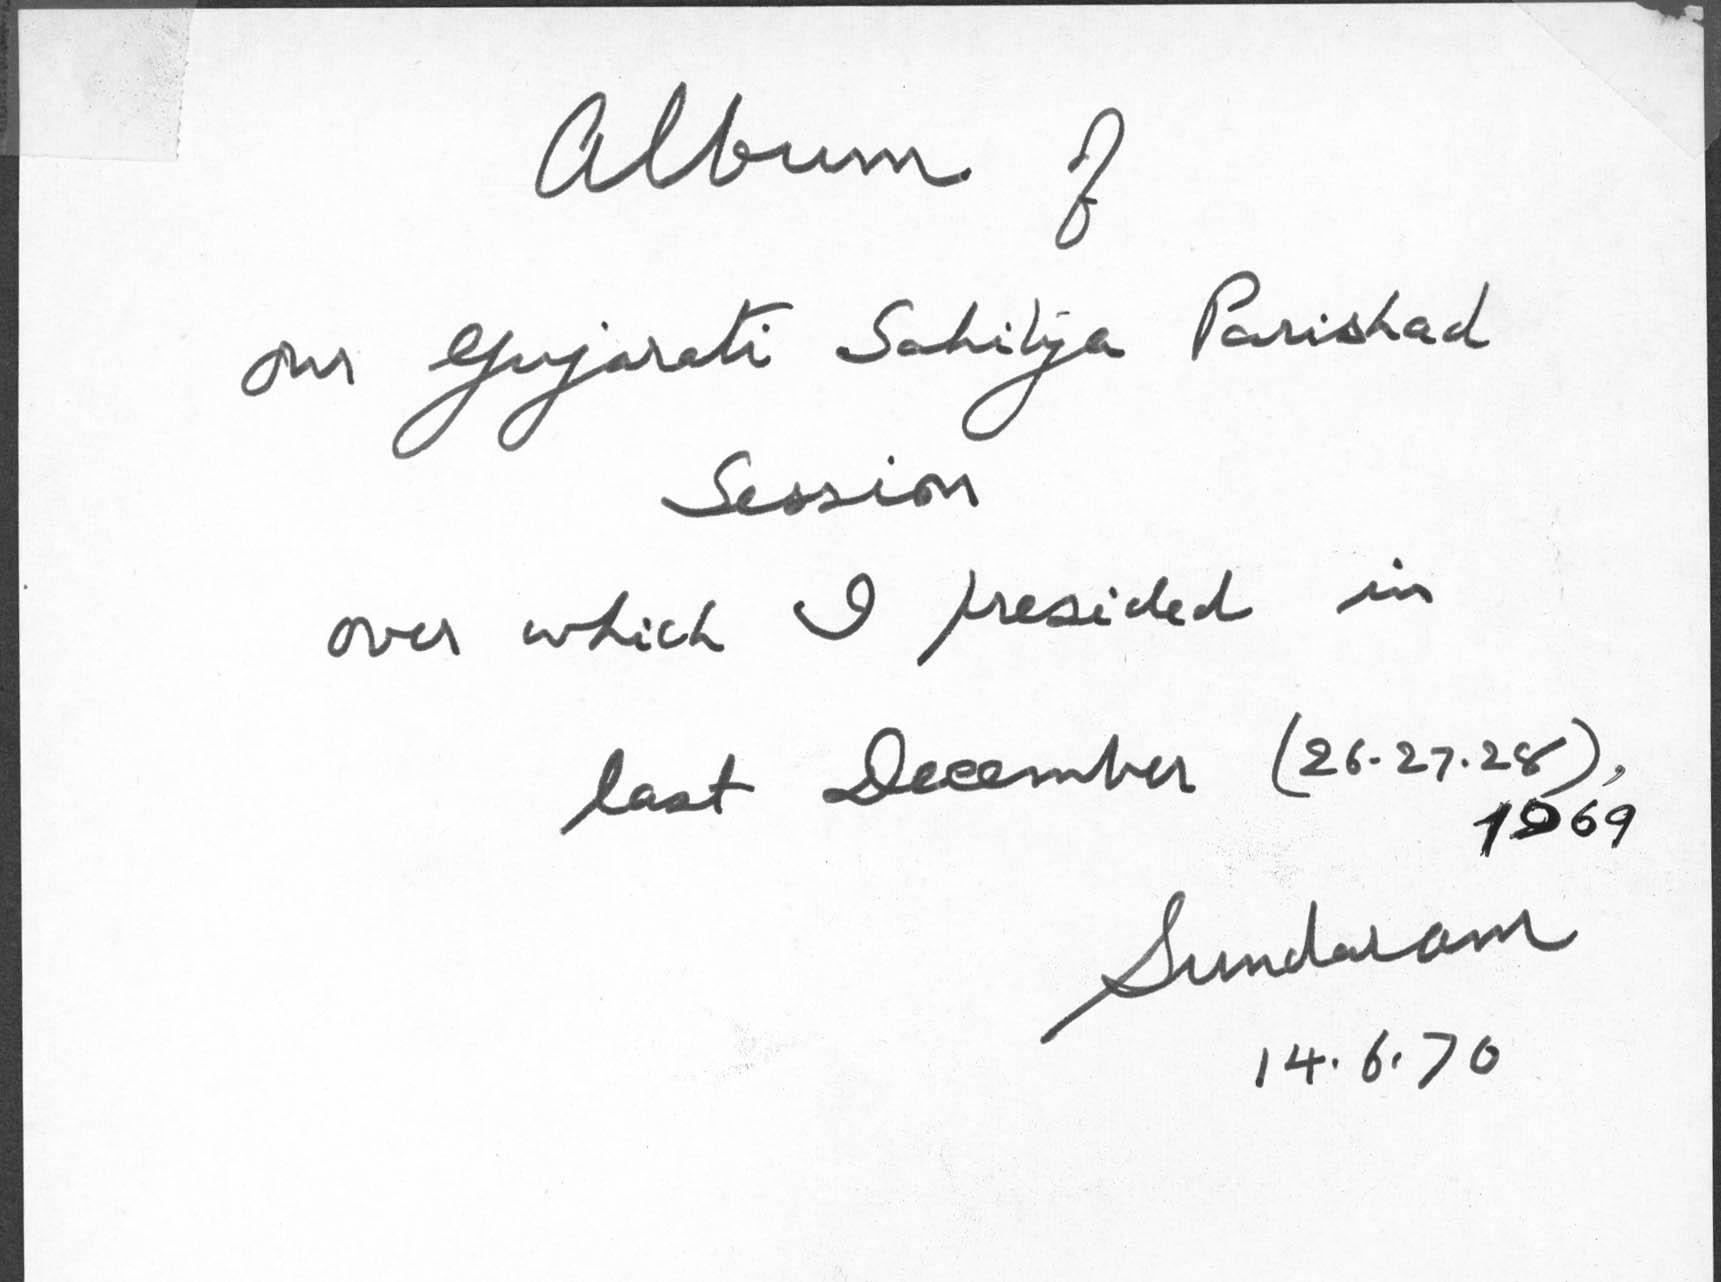 Album of
our Gujarati Sahitya Parishad
Session
over which I presided in
last December (26.27.28),
1969
Sundaram
14.6.70